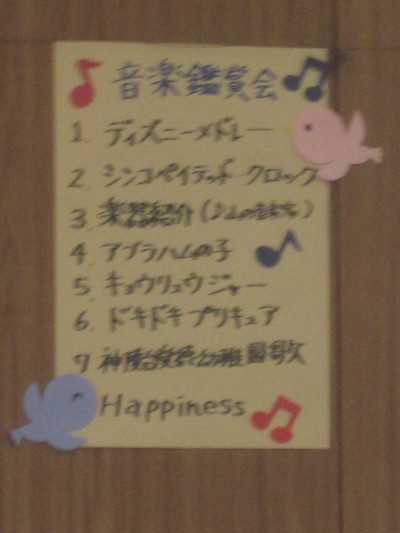 音楽鑑賞会
1. ディズニーメドレー
2. シンコペイテッド クロック
3 楽器紹介(
4. アブラハムの子
5. キョウリュウジャー
6. ドキドキプリキュア
7 幼稚園歌
Happiness